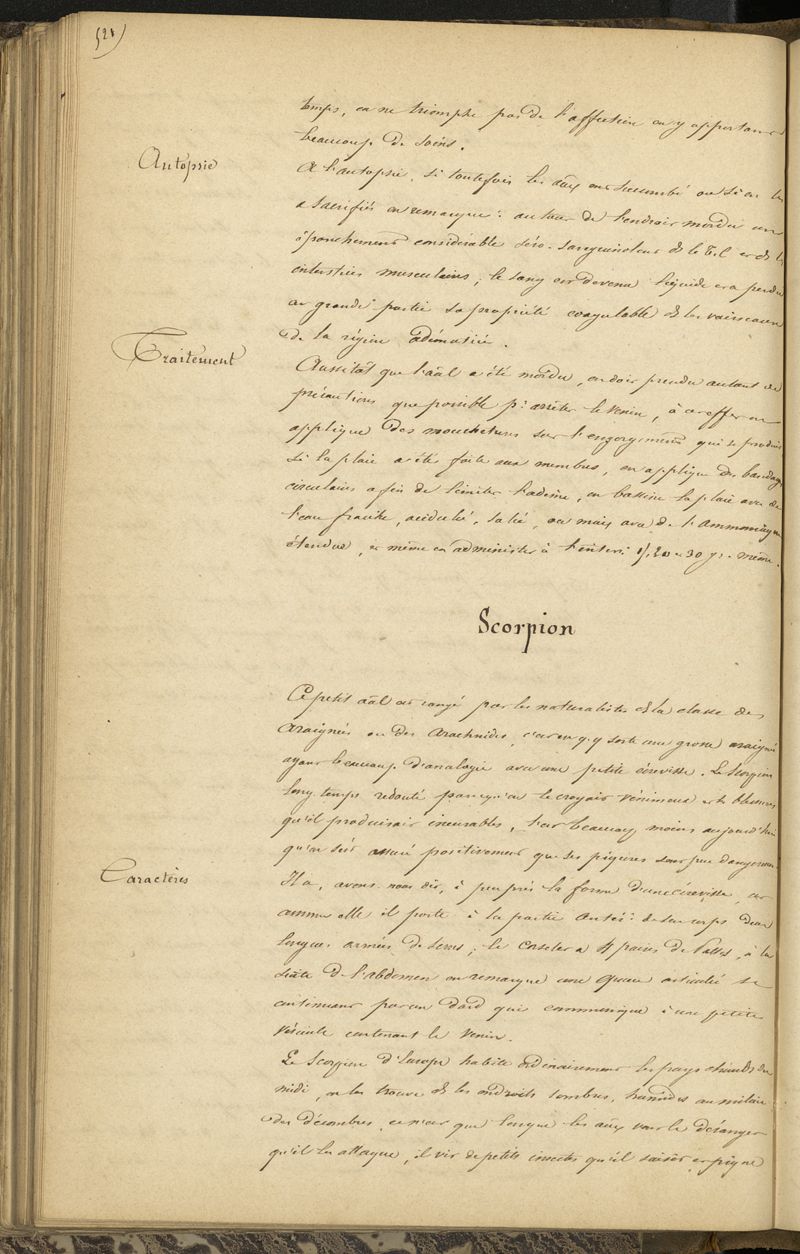 521)
temps, on ne triomphe pas de l'affection en y apportant
beaucoup de soins.
Autopsie
A l'autopsie, si toutefois les aãx ont succombé ou si on les
a sacrifiés on remarque: autour de l'endroit mordu un
épanchement considérable séro-sanguinolent ds le T.C et ds les
interstices musculaires; le sang est devenu liquide et a perdu
en grande partie sa propriété coagulable ds les vaisseaux
de la région œdématiée.
Traitement
Aussitôt que l'aãl a été mordu, on doit prendre autant de
précautions que possible pr arrêter le venin, à cet effet on
applique des mouchetures sur l'engorgement qui se produit
si la plaie a été faite aux membres, on applique des bandages
circulaires afin de limiter l'œdème, on bassine la plaie avec de
l'eau fraiche, acidulé, salée, ou mais avec de l'Ammoniaque
étendue, et même on administre à l'intérr 15, 20 a 30 gr. même.
Scorpion
Ce petit aãl est rangé par les naturalistes ds la classe des
Araignées ou des Arachnides, c'est en q.q sorte une grosse araignée
ayant beaucoup d'analogie avec une petite écrevisse. Le Scorpion
long temps redouté parcequ'on le croyait vénimeux et les blessures
qu'il produisait incurables, l'est beaucoup moins aujourd'hui
qu'on s'est assuré positivement que ses piqures sont peu dangereuses.
Caractères
Il a, avons nous dit, à peu près la forme d'une écrevisse, car
comme elle il porte à la partie antérre de son corps deux
longues armées de serres; le a 4 paires de Pattes, à la
suite de l'abdomen on remarque une queue articulée se
continuant par un dard qui communique à une petite
vésicule contenant le venin.
Le Scorpion d'Europe habite ordinairement les pays chauds du
midi, on les trouve ds les endroits sombres, humides au milieu
des décombres, ce n'est que lorsque les aãx vont le déranger
qu'il les attaque, il vit de petits insectes qu'il saisit et pique